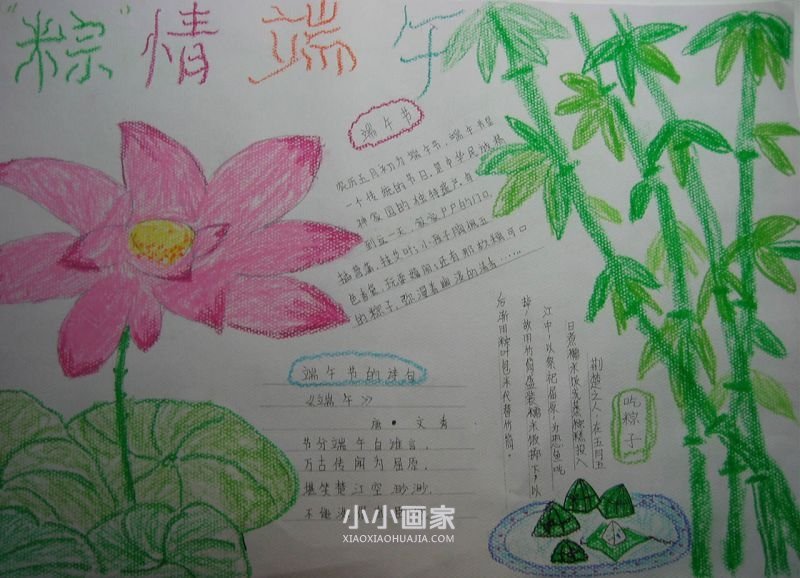 “粽”情端午
端午节
农历五月初为端午节，端午节是
一个传统的节日，是中华民族
神家园的独特 每
到五一天，家家户户的门口
插菖蒲，挂艾叶；小孩子胸佩五
色香袋，玩耍嬉闹；还有那软糯可口
的粽子，弥漫着幽淡的清香……
端午节的诗句
《端午》
唐·文秀
节分端午自谁言，
万古传闻为屈原。
堪笑楚江空渺渺，
不能
吃粽子
荆楚之人，在五月五
日煮糯米饭或蒸粽糕投入
江中，以祭祀屈原，为恐鱼吃
掉，故用竹筒盛装糯米饭掷下，以
后渐用粽叶包米代替竹筒。
小小画家
XIAOXIAOHUAJIA.COM